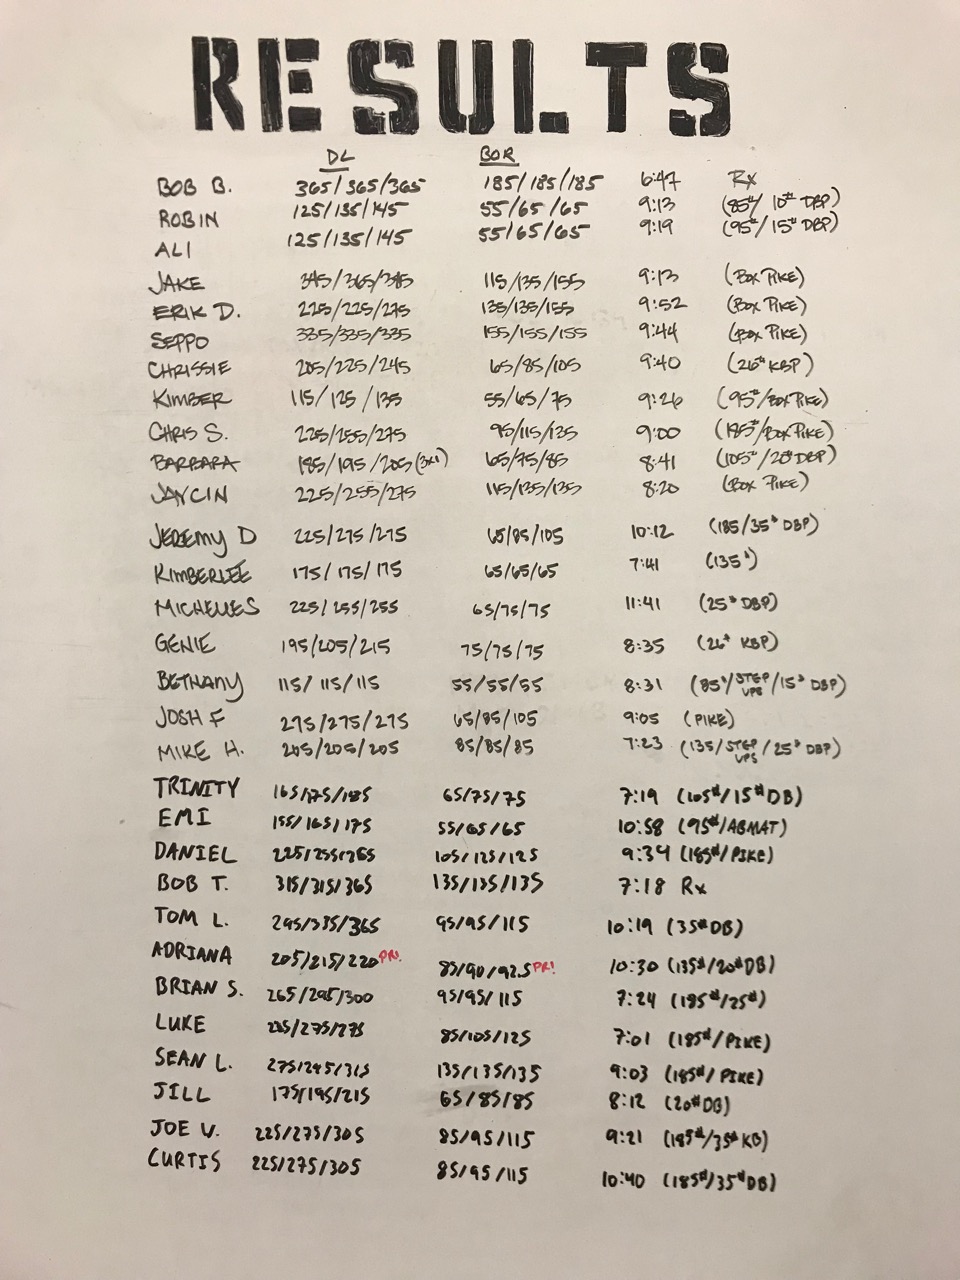 RESULTS
DL BOR
BOB B. 365/365/365 185/185/185 6:47 Rx
ROBIN 125/135/145 55/65/65 9:13 (85#/10# DBP)
ALI 125/135/145 55/65/65 9:19 (95#/15# DBP)
JAKE 345/365/385 115/135/155 9:13 (BOX PIKE)
ERIK D. 225/225/275 135/135/155 9:52 (BOX PIKE)
SEPPO 335/335/335 155/155/155 9:44 (BOX PIKE)
CHRISSIE 205/225/245 65/85/105 9:40 (26# KBP)
KIMBER 115/125/135 55/65/75 9:26 (95#/BOX PIKE)
CHRIS S. 225/255/275 95/115/135 9:00 (185#/BOX PIKE)
BARBARA 185/195/205 (3x1) 65/75/85 8:41 (105#/20# DBP)
JAYCIN 225/255/275 115/135/135 8:20 (BOX PIKE)
JEREMY D 225/275/275 65/85/105 10:12 (185/35# DBP)
KIMBERLEE 175/175/175 65/65/65 7:41 (135#)
MICHELLE S 225/255/255 65/75/75 11:41 (25# DBP)
GENIE 195/205/215 75/75/75 8:35 (26# KBP)
BETHANY 115/115/115 55/55/55 8:31 (85#/STEP UPS/15# DBP)
JOSH F 275/275/275 65/85/105 9:05 (PIKE)
MIKE H. 205/205/205 85/85/85 7:23 (135/STEP UPS/25# DBP)
TRINITY 165/175/185 65/75/75 7:19 (105#/15# DB)
EMI 155/165/175 55/65/65 10:58 (95#/ABMAT)
DANIEL 225/255/265 105/125/125 9:34 (185#/PIKE)
BOB T. 315/315/365 135/135/135 7:18 Rx
TOM L. 295/335/365 95/95/115 10:19 (35# DB)
ADRIANA 205/215/220 PR! 85/90/92.5 PR! 10:30 (135#/20# DB)
BRIAN S. 265/295/300 95/95/115 7:24 (185#/25#)
LUKE /275/275 85/105/125 7:01 (185#/PIKE)
SEAN L. 275/295/315 135/135/135 9:03 (185#/PIKE)
JILL 175/195/215 65/85/85 8:12 (20# DB)
JOE V. 225/275/305 85/95/115 9:21 (185#/35# KB)
CURTIS 225/275/305 85/95/115 10:40 (185#/35# DB)